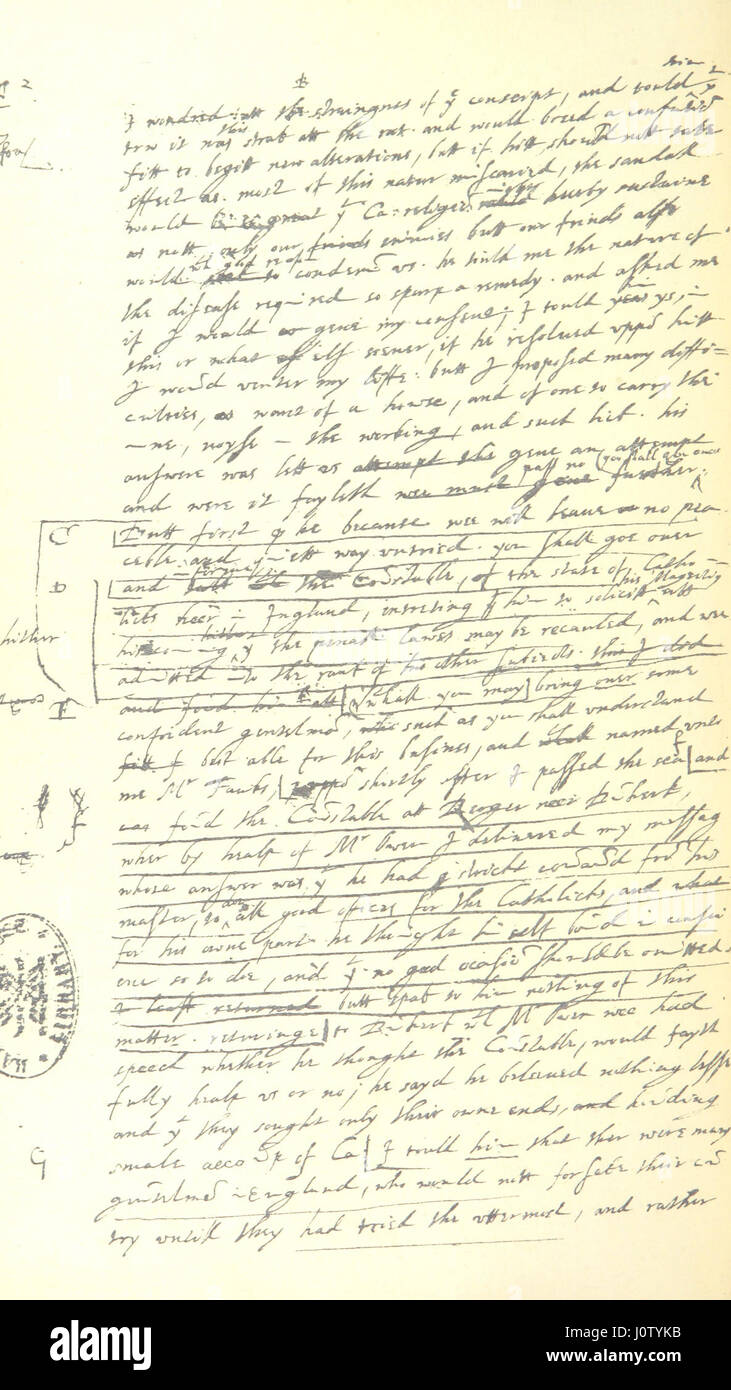 2
B
I wondred att the straingnes of yᵉ conseipt, and tould him
trw it was this strak att the root and would breed a confusion
fitt to begitt new alterations, butt if hitt should nott take
effect as most of this natur miscaried, the scandall
would be so great yᵗ Ca: religion might hereby sustaine
as nott only our enimies butt our frinds also
would wᵗʰ good reason condem us. he tould me the nature of
the disease required so sharp a remedy. and asked me
if I would geue my consent; I tould him yes, in
this or what els soeuer, if he resolued uppon hitt
I would venter my lyffe: butt I proposed many diffi=
culties, as want of a howse, and of one to carry the
myne, noyse in the working, and such lick. his
answere was lett us geue an attempt
and were it fayleth pass no further:
C
Butt first q he because wee will leaue no pea
ceble and quiett way untried. you shall goe ouer
D
and informe the Constable, of the state of Catho
licks heer in Ingland, intreting him to solicitt his Magesty att
hither
his coming hither yᵗ the penall lawes may be recauled, and wee
admitted into the rank of his other subiects.
F
withall you may bring ouer some
confident gentelman, such as you shall understand
best able for this busines, and named unto
me Mʳ Fauks, shortly after I passed the sea and
found the Constable at Berger neer Dunkerk,
wher by healp of Mʳ Owen I deliuered my messag
whose answer was yᵗ he had strickt comaund from his
master, to do all good offices for the Catholicks, and
for his owne part he thought him self bound in consci
ence so to doe, and yᵗ no good ocasion should be omitted
butt spak to him nothing of this
matter. returinge to Dunkerk wᵗʰ Mʳ Owen wee had
speech whether he thought the Constable, would fayth
fully healp us or no; he sayd he beleued nothing lesse
and yᵗ they sought only their owne ends, houlding
small account of Ca
G
I tould him that ther were many
gentelmen in England, who would nott forsake their coun
try untill they had tried the uttermost, and rather
alamy stock photo
alamy stock photo
J0TYKB
www.alamy.com